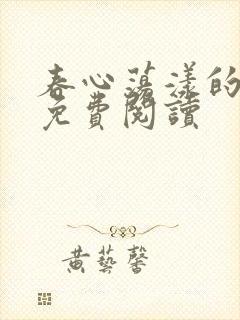 春心荡漾的
免費閱讀
黃藝馨